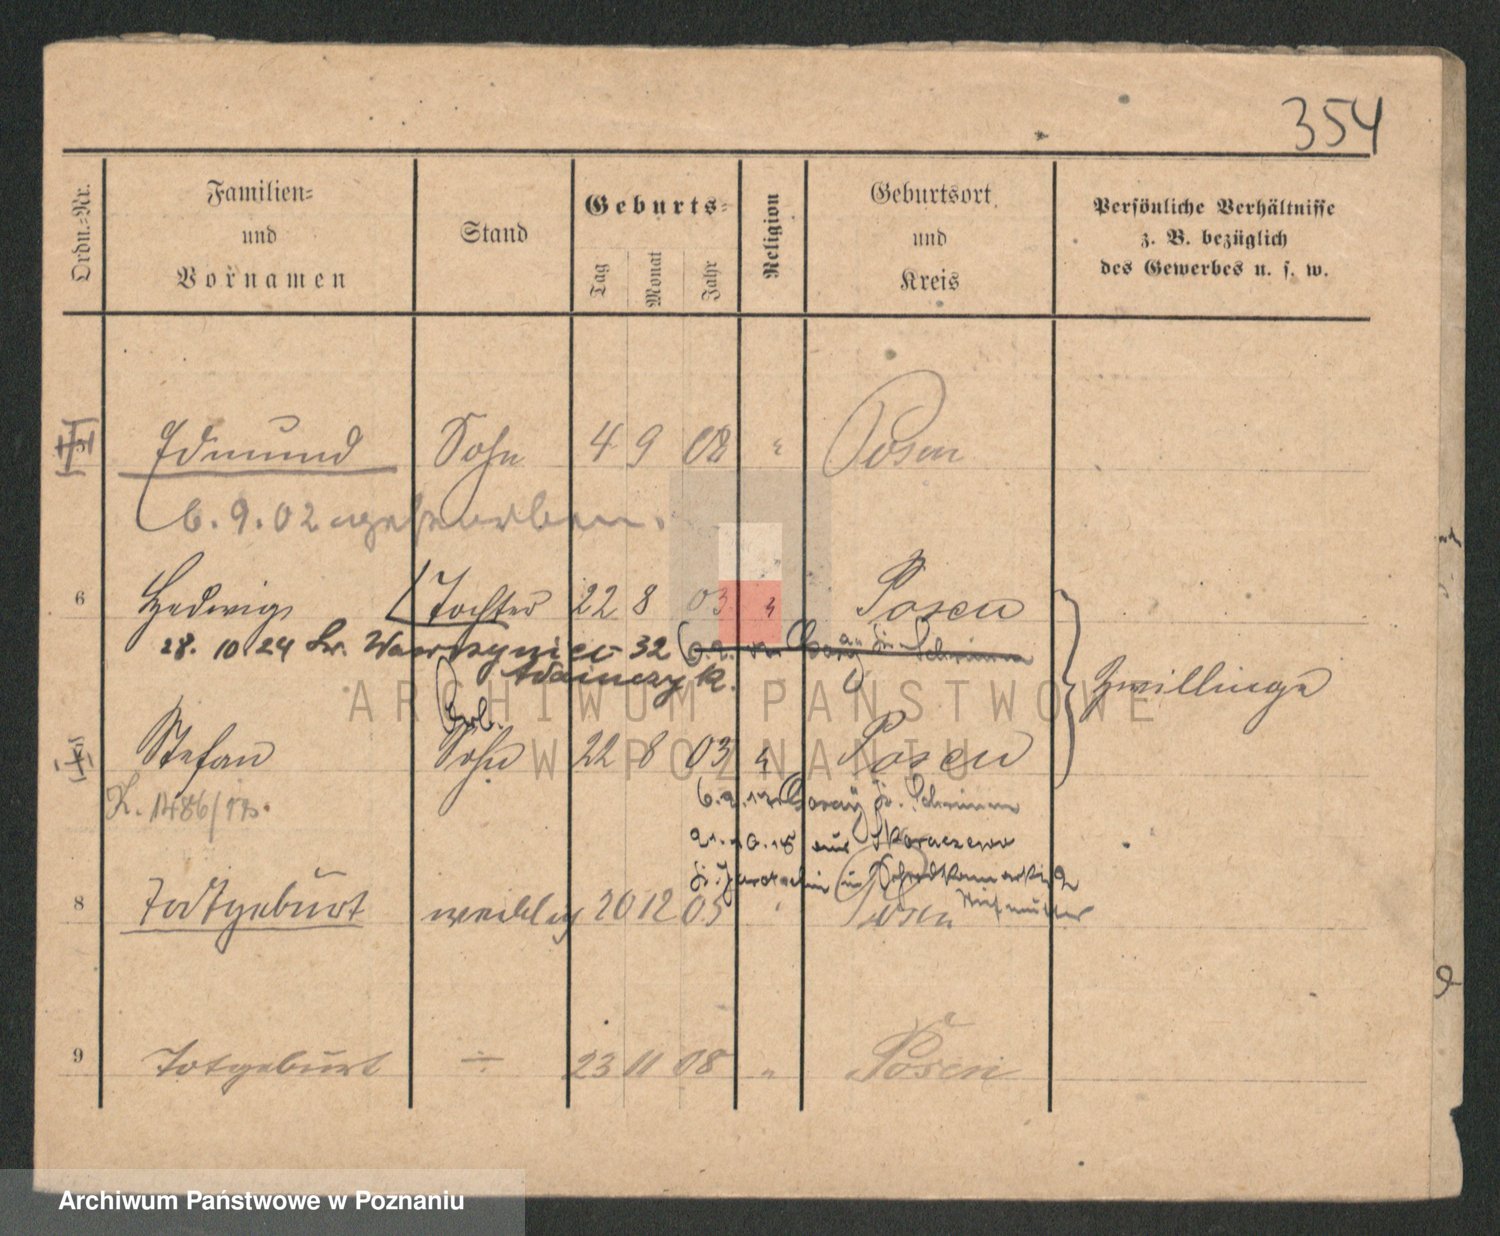 354
Ordn.-Nr.
Familien-
und
Vornamen
Stand
Geburts-
Tag
Monat
Jahr
Religion
Geburtsort
und
Kreis
Persönliche Verhältnisse
z. B. bezüglich
des Gewerbes u. s. w.
Edmund Sohn 4 9 02 " Posen
6. 9. 02 gestorben.
6 Hedwig Tochter 22 8 03 Posen
28. 10 24 św. Wawrzyniec 32
Adamczyk.
Zwillinge
Stefan Sohn 22 8 03 Posen
K. 1486/13.
8 Todtgeburt weiblich 20 12 05 " Posen
9 Totgeburt ÷ 23 11 08 " Posen
ARCHIWUM PAŃSTWOWE
W POZNANIU
Archiwum Państwowe w Poznaniu